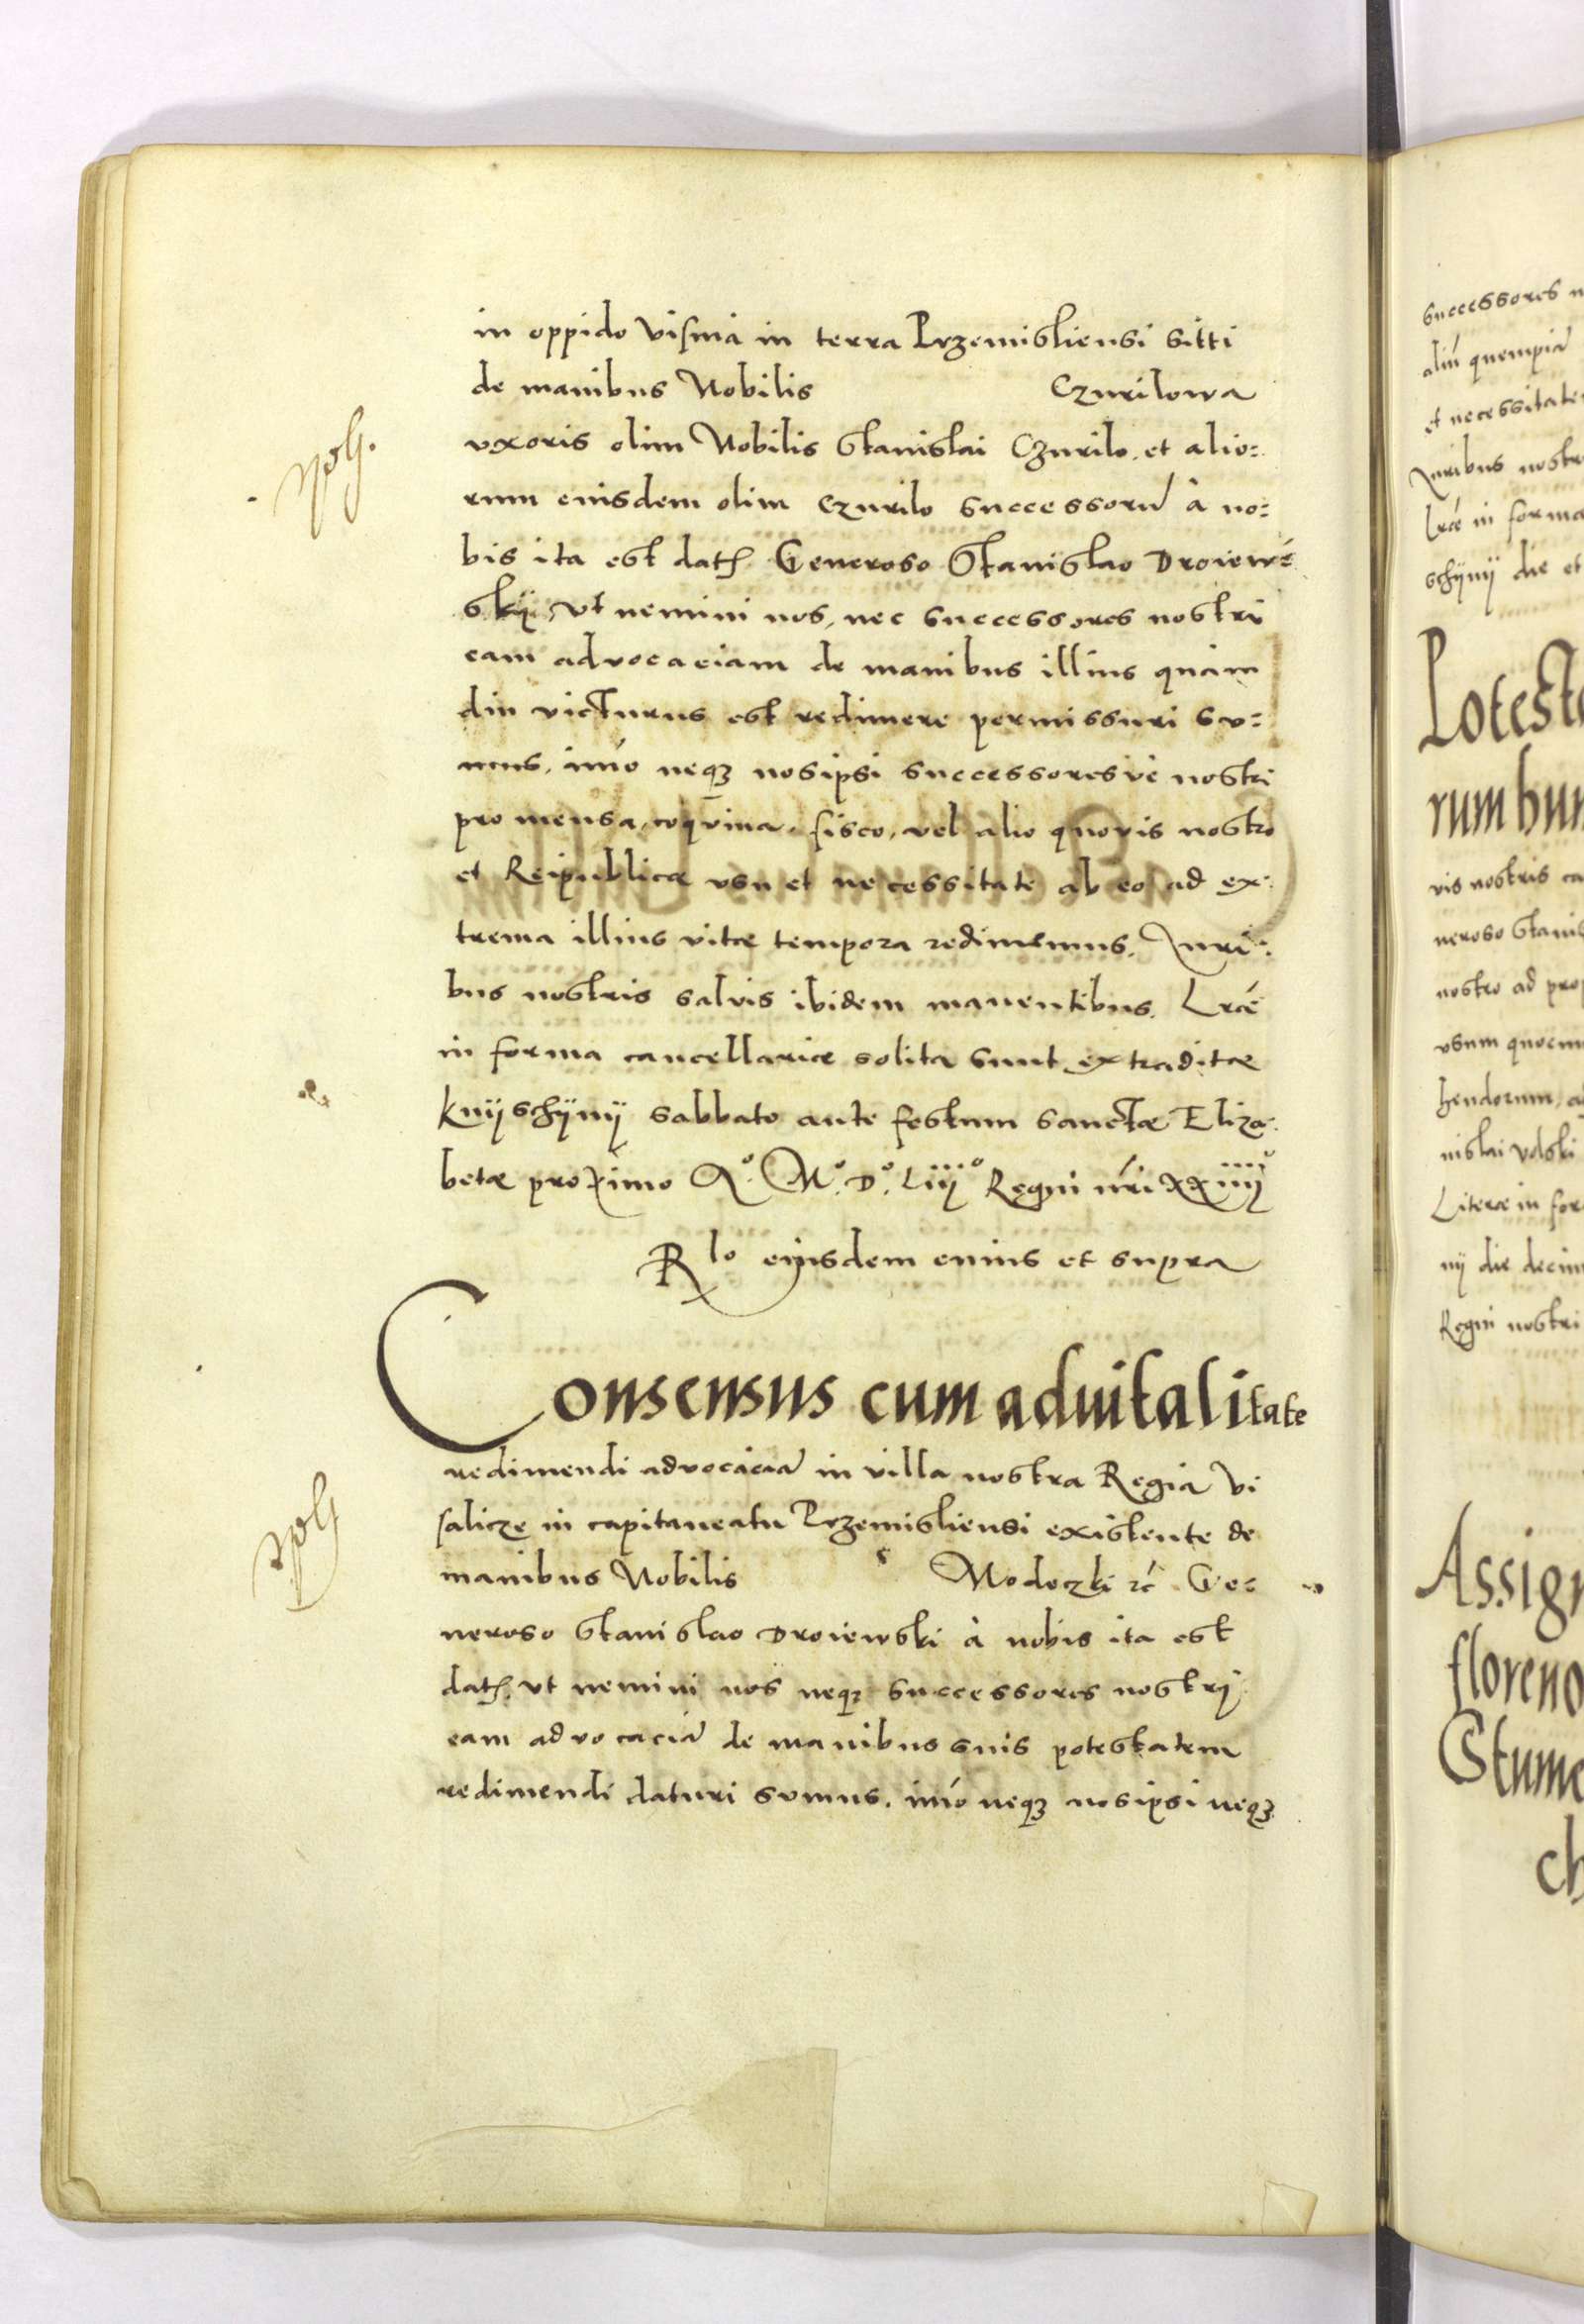 in oppido Visnia in terra Przemisliensi sitti
de manibus Nobilis Czurilowa
vxoris olim Nobilis Stanislai Czurilo, et alio:
rum eiusdem olim Czurilo successorũ à no:
bis ita est datꝰ Generoso Stanislao Droiew:
skÿ, vt nemini nos, nec successores nostri
eam advocaciam de manibus illius quàm
diu victurus est redimere permissuri su:
mus. imó neqꝫ nosipsi successoresvè nostri
pro mensa, coqvina, fisco, vel alio quovis nostro
et Reipublicæ vsu et necessitate ab eo ad ex:
trema illius vitæ tempora redimemus. Iuri:
bus nostris salvis ibidem manentibus. Lræ
in forma cancellariæ solita sunt extraditæ
Knÿschÿnÿ sabbato ante festum sanctæ Eliza:
betæ proximo Aº. Mº. Dº. Liijº Regni nri xxiiij
Rlo eijusdem cuius et supra
Consensus cum advitalitate
redimendi advocaciã in villa nostra Regia Vi
salicze in capitaneatu Przemisliensi existente de
manibus Nobilis Modoczki rc̃. Ge:
neroso Stanislao Droiewski à nobis ita est
datꝰ, vt nemini nos neqꝫ successores nostrj
eam advocaciã de manibus suis potestatem
redimendi daturi sumus. imó neqꝫ nosipsi neqꝫ
successores n
aliũ quempiã
et necessitate
Iuribus nostr
Lræ in forma
schÿnÿ die et
Potest
rum bu
vis nostris ca
neroso Stanis
nostro ad prop
vsum quocun
hendorum, a
nislai Volski
Literæ in for
nÿ die decim
Regni nostri
Assign
floreno
Stum
ch